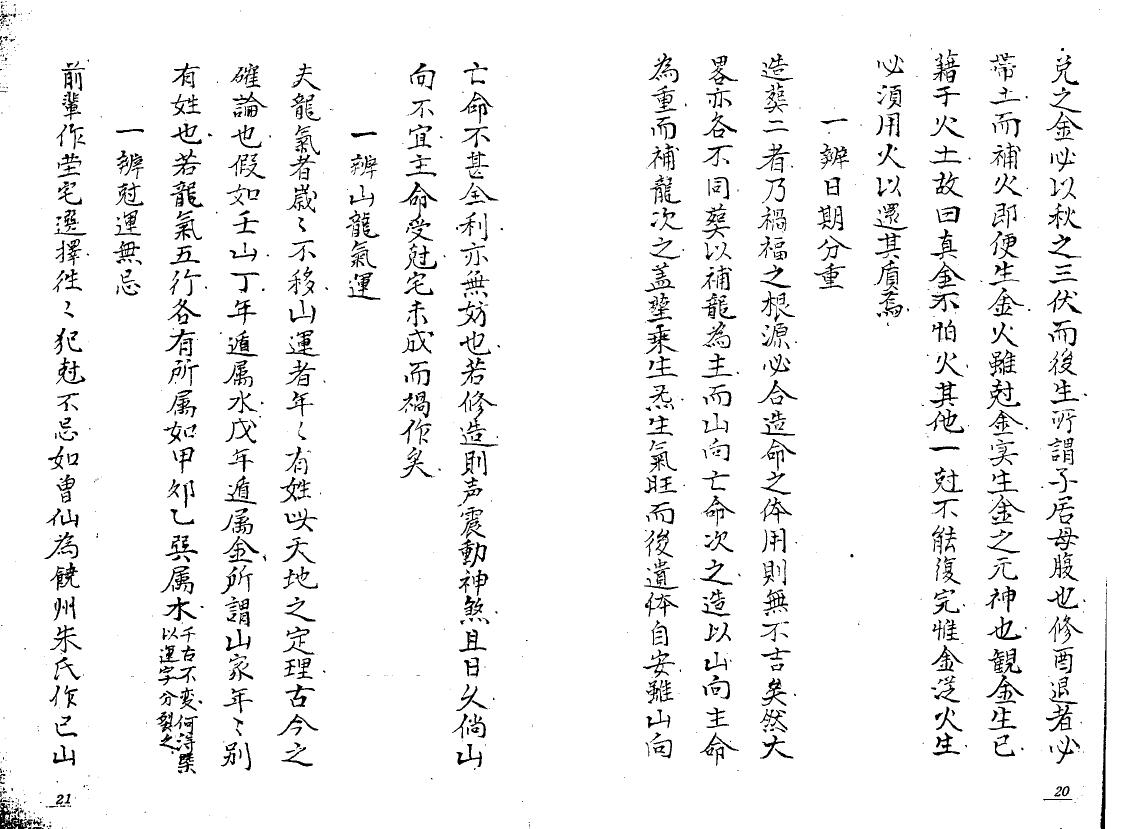 兌之金必以秋之三伏而後生所謂子居母腹也修酉退者必
帶土而補火即便生金火雖尅金实生金之元神也観金生巳
藉于火土故曰真金不怕火其他一尅不能復完惟金従火生
必須用火以還其質焉
一辨日期分重
造葬二者乃禍福之根源必合造命之体用則無不吉矣然大
畧亦各不同葬以補龍為主而山向亡命次之造以山向主命
為重而補龍次之蓋塟乗生炁生氣旺而後遺体自安雖山向
20
亡命不甚全利亦無妨也若修造則声震動神煞且日久倘山
向不宜主命受尅宅未成而禍作矣
一辨山龍氣運
夫龍氣者歲〻不移山運者年〻有姓此天地之定理古今之
確論也假如壬山丁年遁属水戊年遁属金所謂山家年〻别
有姓也若龍氣五行各有所属如甲卯乙巽属水千古不变何得槩以運字分裂之
一辨尅運無忌
前輩作塋宅選擇徃〻犯尅不忌如曾仙為饒州朱氏作巳山
21